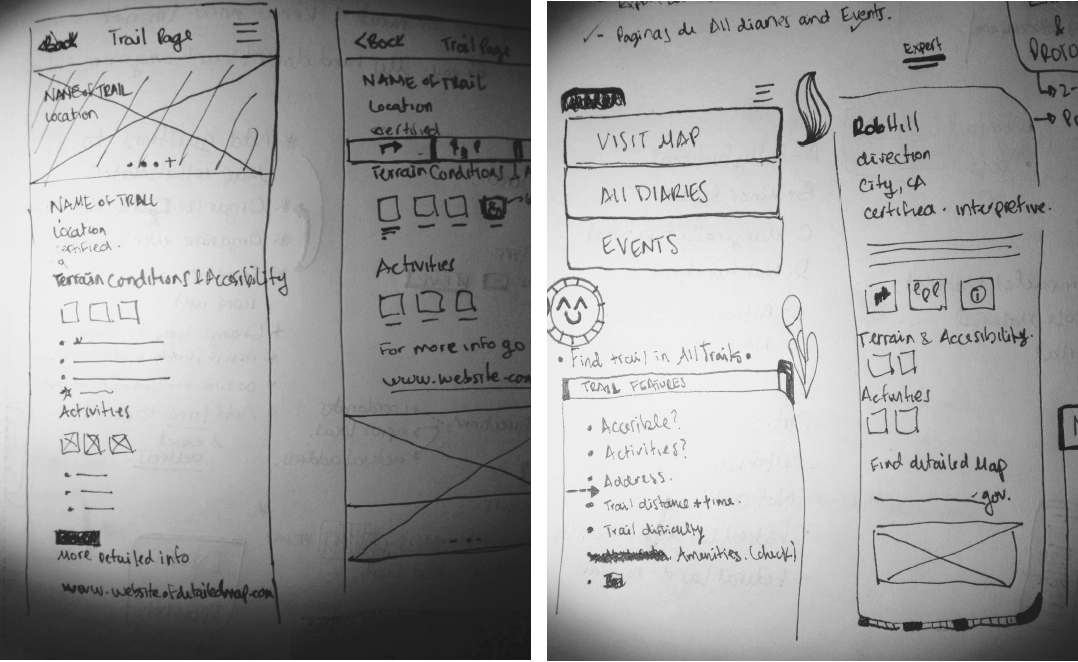 <Back Trail Page
NAME of TRAIL
Location
NAME OF TRAIL
Location
certified.
Terrain Conditions & Accesibility
Activities
More Detailed info
www.websiteofdetailedmap.com
<Back Trail Page
NAME of Trail
Location
certified
Terrain Conditions & A
Activities
For more info go
www.website.com
Paginas de All diaries and Events.
VISIT MAP
All DIARIES
EVENTS
• Find trail in AllTrails •
TRAIL FEATURES
• Accesible?
• Activities?
• Address.
• Trail distance + time.
• Trail difficulty
Amenities. (check)
Expert
&
PROTO
Rob Hill
direction
City, CA
certified. interpretive.
Terrain & Accesibility.
Activities
Find detailed Map
.gov.